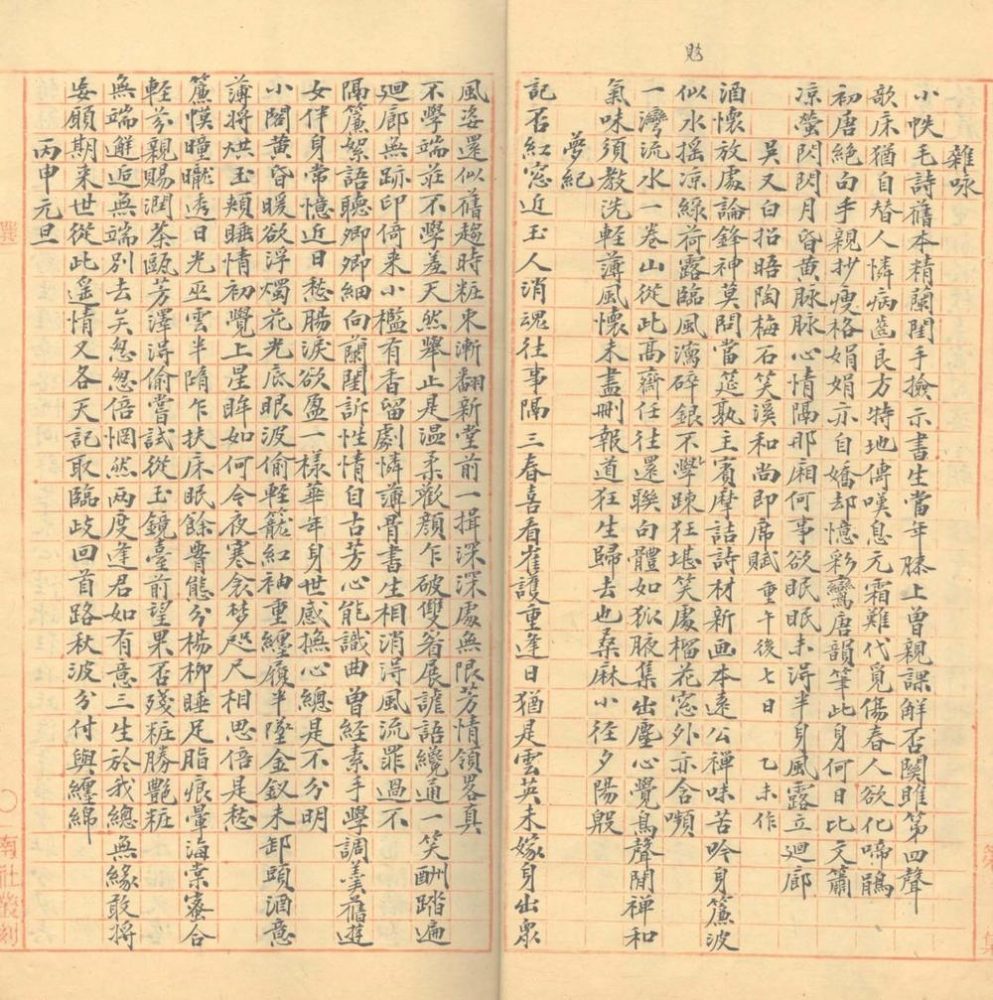 賒
雜咏
小帙毛詩舊本精蘭閨手撿示書生當年膝上曾親課解否関雎第四聲
歌床猶自替人憐病齒良方特地傳嘆息元霜難代覓傷春人欲化啼鵑
初唐絕句手親抄瘦格娟娟亦自嬌却憶彩鸞唐韻筆此身何日比文簫
凉螢閃閃月昏黄脉脉心情隔那厢何事欲眠眠未淂半身風露立廻廊
吴又白招晤陶梅石笑溪和尚即席賦重午後七日 乙未作
酒懷放處論鋒神莫問當筵孰主賓摩詰詩材新画本遠公禅味苦吟身簾波
似水摇凉綠荷露臨風瀉碎銀不學踈狂堪笑處榴花窓外亦含嚬
一灣流水一卷山從此高齋任往還聯句體如狐腋集出塵心覺鳥聲閒禅和
氣味須教洗輕薄風懷未盡刪報道狂生歸去也桑麻小徑夕陽殷
夢紀
記否紅窓近玉人消魂往事隔三春喜看崔護重逢日猶是雲英未嫁身出衆
風姿還似舊趨時粧束漸翻新堂前一揖深深處無限芳情領畧真
不學端莊不學羞天然舉止是温柔歡顔乍破雙眉展謔語纔通一笑酬踏遍
廻廊無跡印倚来小檻有香留劇憐薄骨書生相消淂風流罪過不
隔簾絮語聽卿卿細向蘭閨訴性情自古芳心能識曲曾経素手學調羹舊遊
女伴身常憶近日愁腸淚欲盈一樣華年身世感撫心總是不分明
小閣黄昏暖欲浮燭花光底眼波偷輕籠紅袖重纏履半墜金釵未卸頭酒意
薄將烘玉頰睡情初覺上星眸如何今夜寒衾夢咫尺相思倍是愁
簾幙曈曨透日光巫雲半隋乍扶床眠餘鬢態分楊柳睡足脂痕暈海棠蜜合
輕芬親賜潤茶甌芳澤淂偷嘗試從玉鏡臺前望果否殘粧勝艷粧
無端邂逅無端別去矣怱怱倍惘然兩度逢君如有意三生於我總無緣敢將
妄願期来世從此遥情又各天記取臨歧回首路秋波分付與纏綿
丙申元旦
選
南社叢刻
第
集